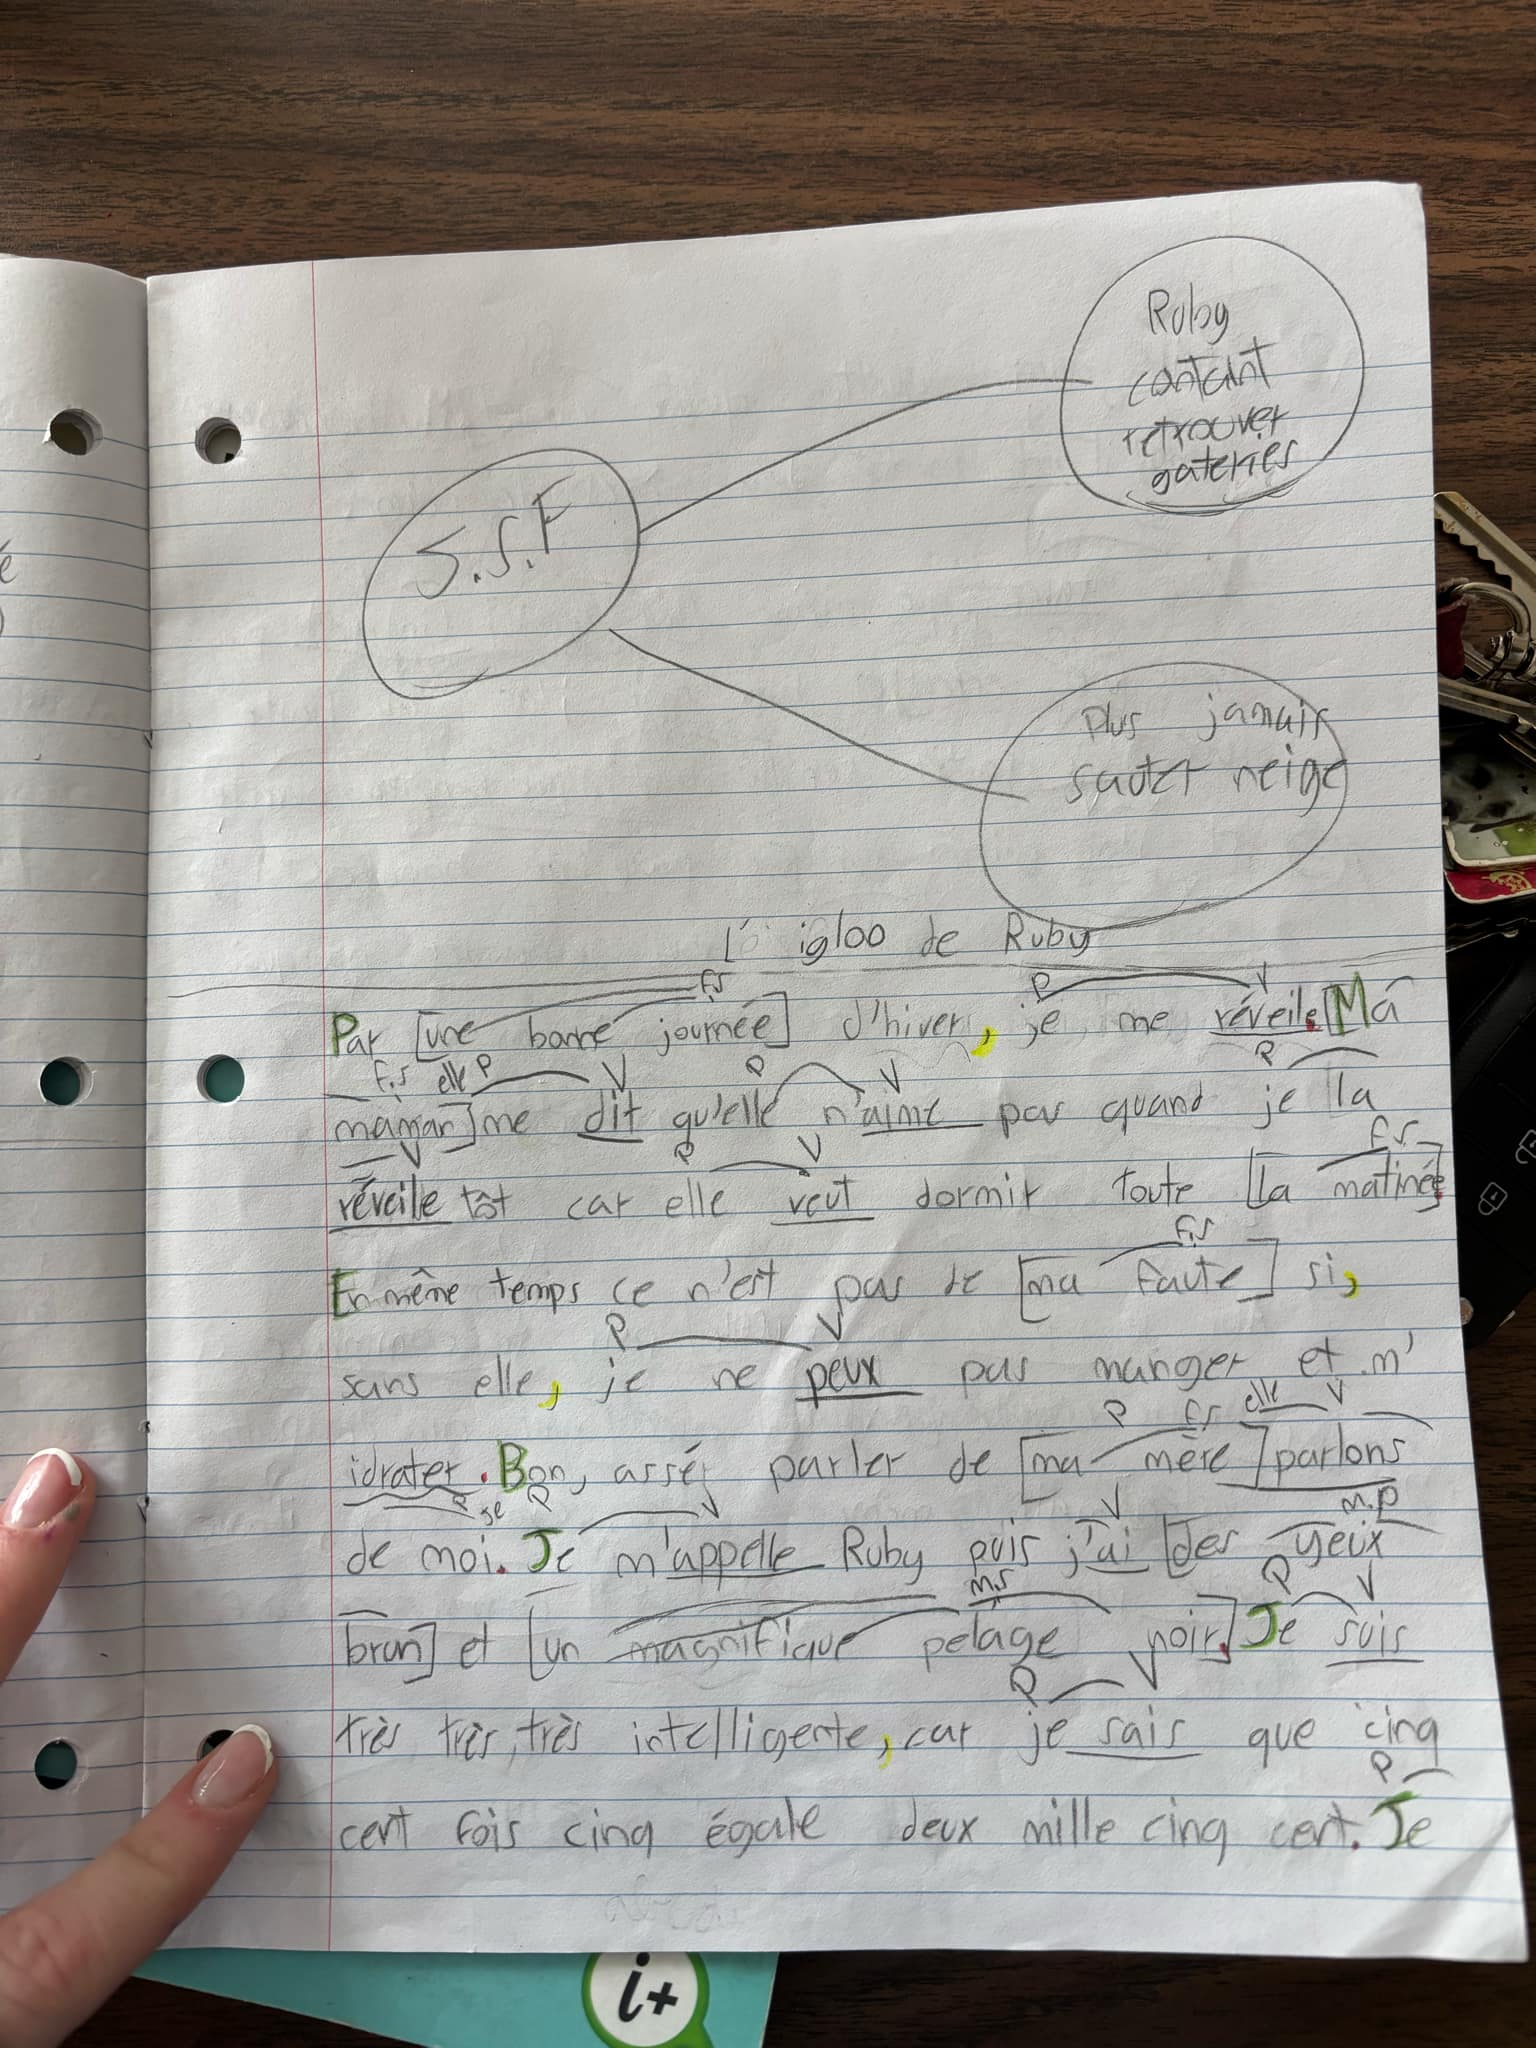 é
Ruby
contant
retrouver
gateries
S.S.F
Plus jamais
sauter neige
L'igloo de Ruby
F.S P V
Par [une bonne journée] d'hiver, je me réveile. [Ma
F.S elle P V P V P
maman] me dit qu'elle n'aime pas quand je la
V P V F.S
réveile tôt car elle veut dormir toute [la matinée].
F.S
En même temps ce n'est pas de [ma faute] si,
P V
sans elle, je ne peux pas manger et m'
P F.S elle V
idrater. Bon, assé parler de [ma mère] parlons
P je P V V m.p
de moi. Je m'appelle Ruby puis j'ai [des yeux
m.s P V
brun] et [un magnifique pelage noir]. Je suis
P V
très, très, très intelligente, car je sais que cinq
P
cent fois cinq égale deux mille cinq cent. Je
i+